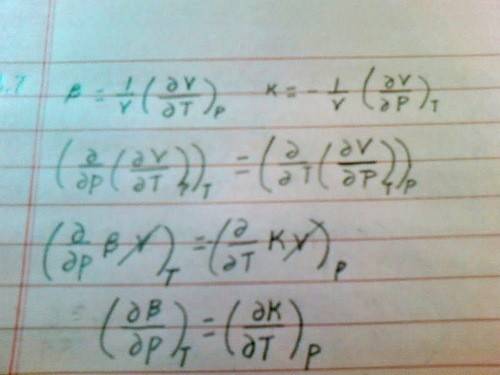 β = 1/V (∂V/∂T)_P K = - 1/V (∂V/∂P)_T
(∂/∂P (∂V/∂T))_T = (∂/∂T (∂V/∂P)_T)_P
(∂/∂P β V)_T = (∂/∂T K V)_P
(∂β/∂P)_T = (∂K/∂T)_P